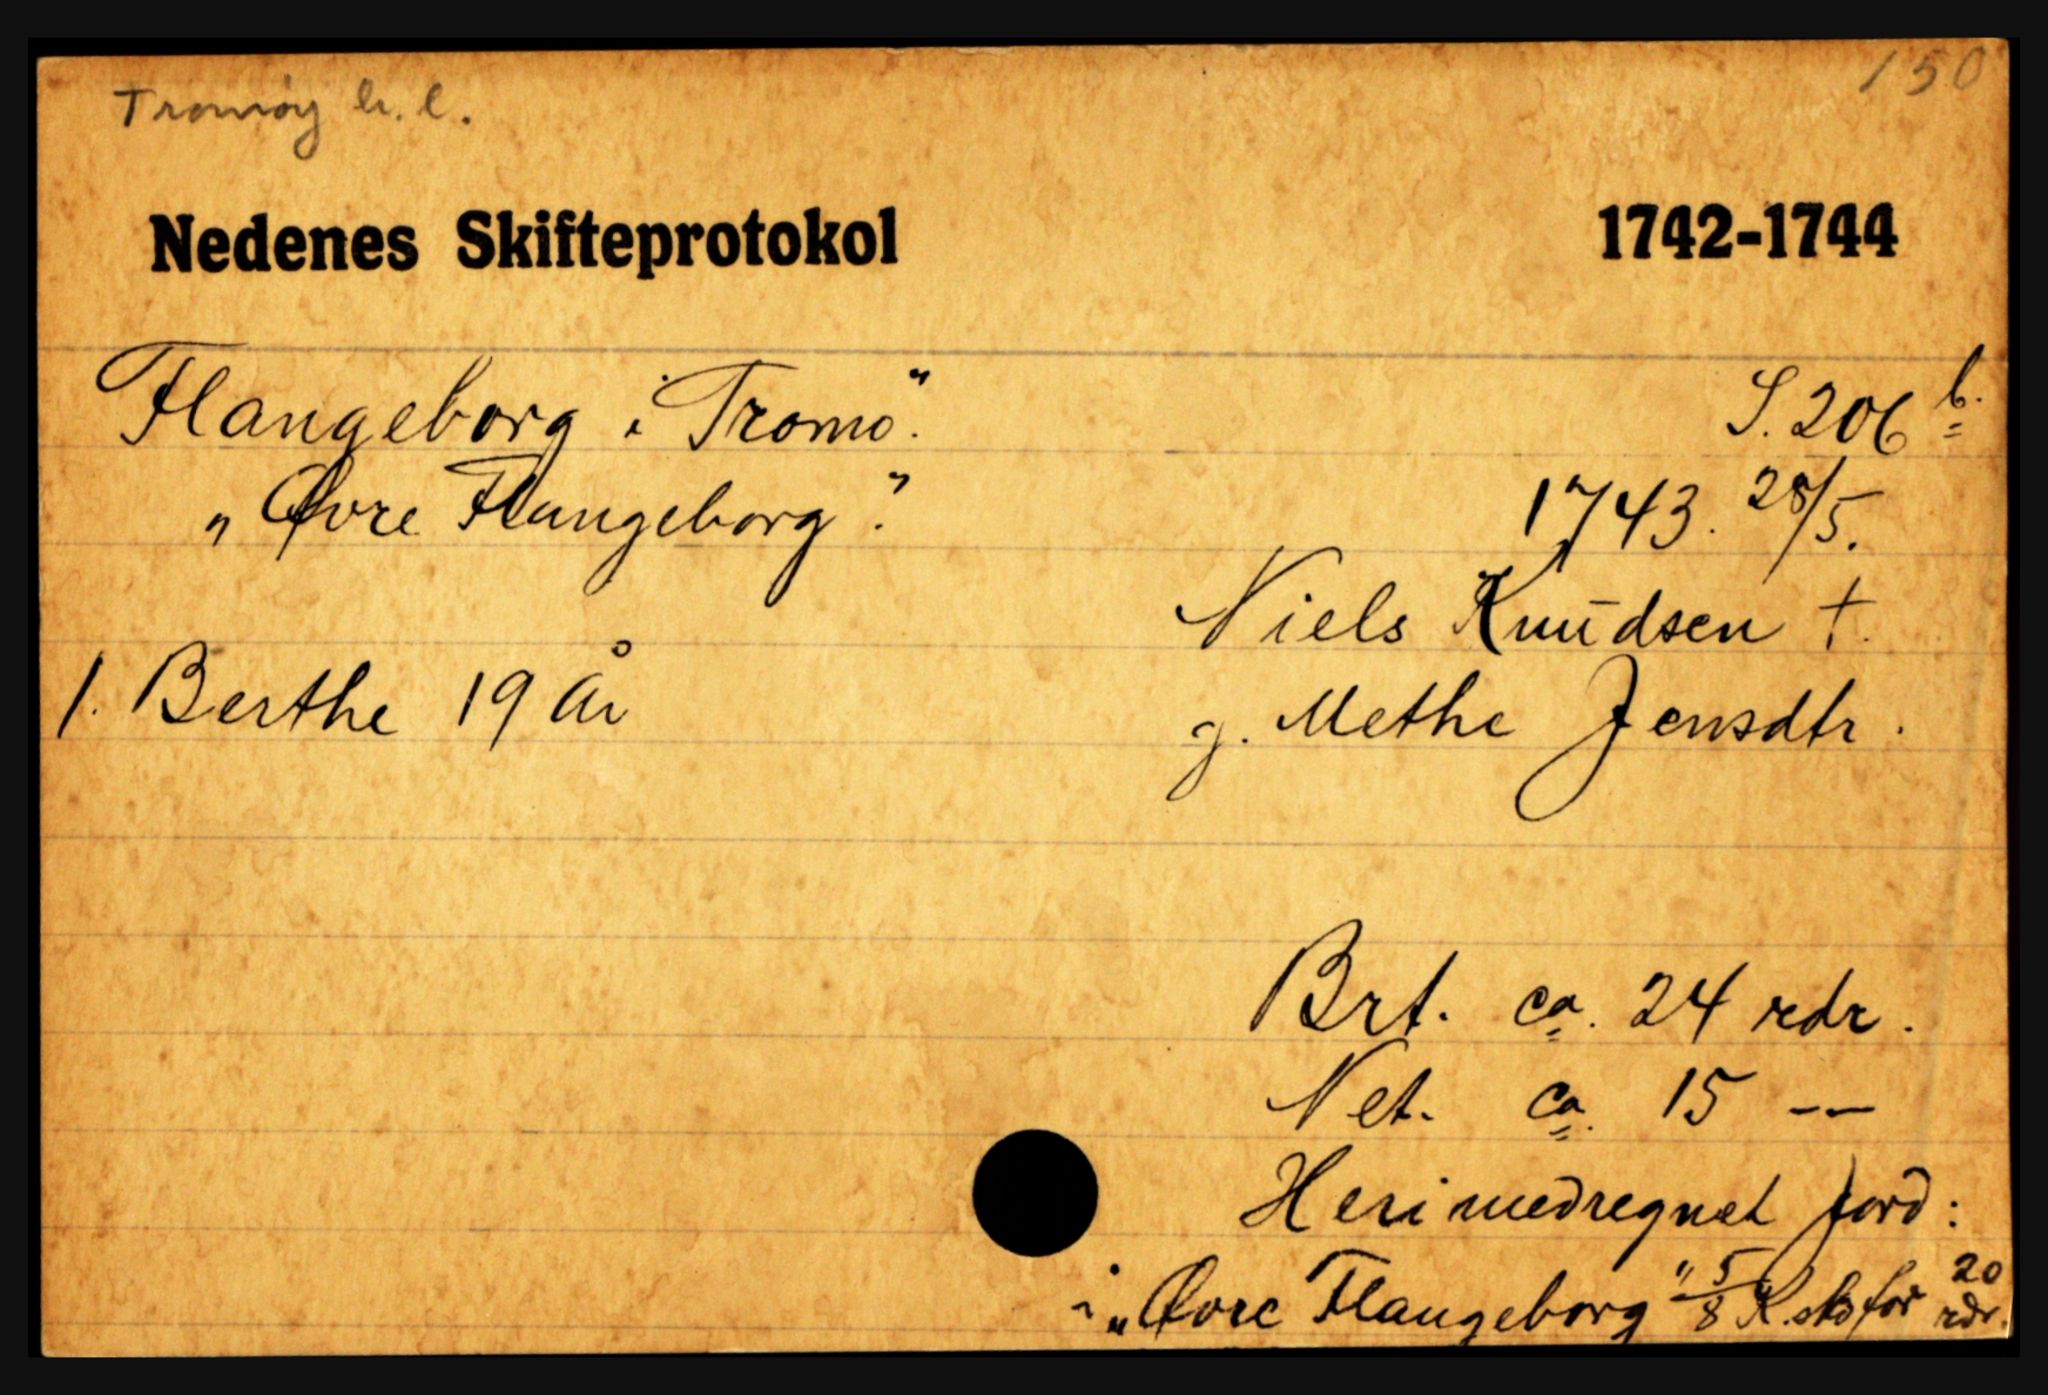 Tromøy h. l.
150
Nedenes Skifteprotokol 1742-1744
Flangeborg i Tromö.
S. 206 b.
„Øvre Flangeborg".
1743. 28/5.
Niels Knudsen †.
1. Berthe 19 år
g. Methe Jensdtr.
Brt. ca. 24 rdr.
Net. ca. 15 --
Heri medregnet Jord:
i „Øvre Flangeborg" 5/8 K. sko for 20 rdr.